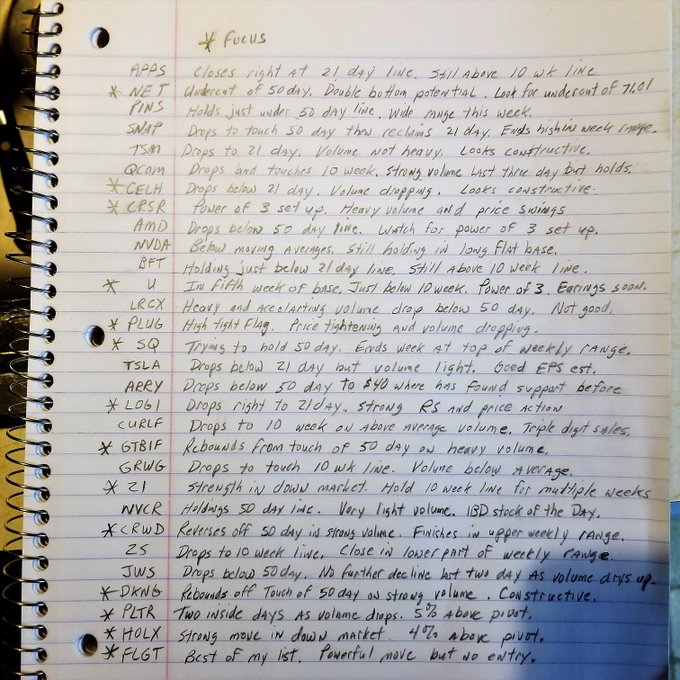 * Focus
APPS Closes right at 21 day line. Still above 10 wk line.
* NET Undercut of 50 day. Double bottom potential. Look for undercut of 71.01
PINS Holds just under 50 day line. Wide range this week.
SNAP Drops to touch 50 day then reclaims 21 day. Ends high in week range.
TSM Drops to 21 day. Volume not heavy. Looks constructive.
QCOM Drops and touches 10 week. Strong volume last three day but holds.
* CELH Drops below 21 day. Volume dropping. Looks constructive.
* CRSR Power of 3 set up. Heavy volume and price swings
AMD Drops below 50 day line. Watch for power of 3 set up.
NVDA Below moving averages. Still holding in long flat base.
BFT Holding just below 21 day line. Still above 10 week line.
* U In fifth week of base. Just below 10 week. Power of 3. Earings soon.
LRCX Heavy and accelarting volume drop below 50 day. Not good.
* PLUG High tight flag. Price tightening and volume dropping.
* SQ Trying to hold 50 day. Ends week at top of weekly range.
TSLA Drops below 21 day but volume light. Good EPS est.
APRY Drops below 50 day to $40 where has found support before
* LOGI Drops right to 21 day. Strong RS and price action
CURLF Drops to 10 week on above average volume. Triple digit sales.
* GTBIF Rebounds from touch of 50 day on heavy volume.
GRWG Drops to touch 10 wk line. Volume below average.
* ZI Strength in down market. Hold 10 week line for multiple weeks
NVCR Holdings 50 day line. Very light volume. IBD stock of the Day.
* CRWD Reverses off 50 day in strong volume. Finishes in upper weekly range.
ZS Drops to 10 week line. Close in lower part of weekly range.
JWS Drops below 50 day. No further decline last two day as volume drys up.
* DKNG Rebounds off Touch of 50 day on strong volume. Constructive.
* PLTR Two inside days as volume drops. 5% above pivot.
* HOLX Strong move in down market 4% above pivot.
* FLGT Best of my list. Powerful move but no entry.